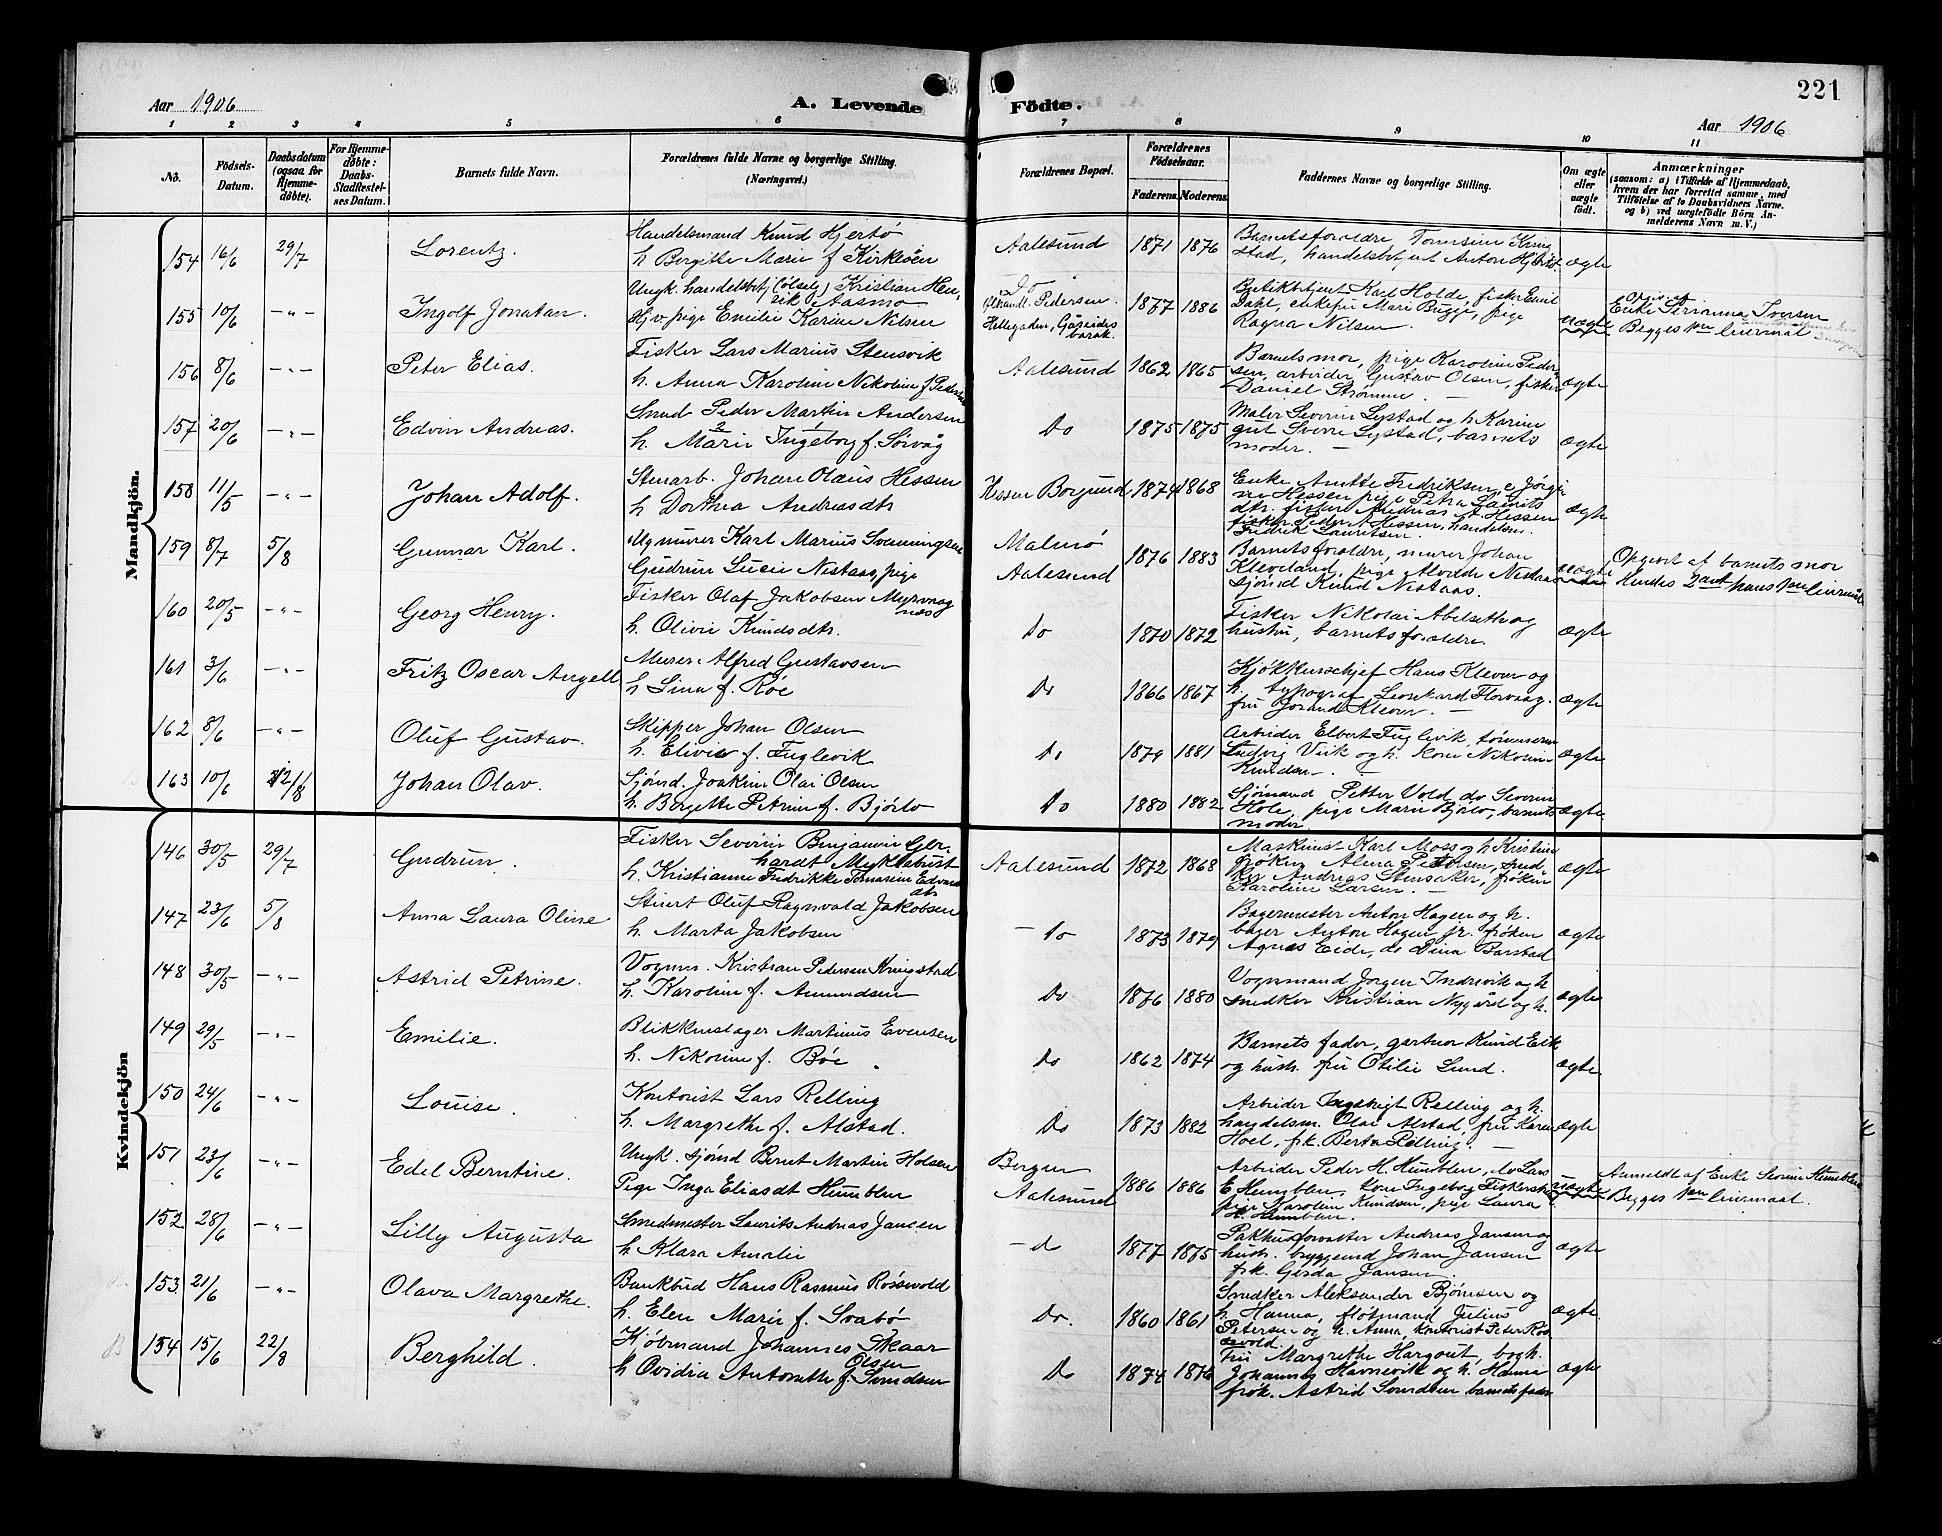 221
Aar 1906
A. Levende Födte.
Aar 1906
1 2 3 4 5 6 7 8 9 10 11
No.
Födsels-Datum.
Daabsdatum (ogsaa for Hjemme-döbte).
For Hjemme-döbte: Daabs-Stadfæstel-ses Datum.
Barnets fulde Navn.
Forældrenes fulde Navne og borgerlige Stilling. (Næringsvei.)
Forældrenes Bopæl.
Forældrenes Födselsaar.
Faderens. Moderens.
Faddernes Navne og borgerlige Stilling.
Om ægte eller uægte födt.
Anmærkninger
(saasom: a) i Tilfælde af Hjemmedaab,
hvem der har forrettet samme, med
Tilföielse af to Daabsvidners Navne.
og b) ved uægtefödte Börn An-
melderens Navn m. V.)
Mandkjön.
154 16/6 29/7 Lorentz.
Handelsmand Knud Hjertö
h Bergitte Marie f Kirkeöen
Aalesund 1871 1876
Barnets foreldre, Tomsine Kring
stad, handelsbetjent Anton
ægte
155 10/6 -"- Ingolf Jonatan.
Ungk. handelsbetj (ølselg) Kristian Hen-
rik Aasmo
Hjv. pige Emilie Karine Nilsen
Do
Pedersen.
Hellegaden, Gåseides
barak.
1877 1886
Butikbetjent Karl Holde, fisker Emil
Dahl, enkefru Mari Bugge, pige
Ragna Nilsen
uægte
Opgiv. af
Enke Perianna Iversen
Begges 1ste leiermaal
156 8/6 -"- Peter Elias.
Fisker Lars Marius Stensvik
h. Anna Karoline Nikoline f Pedersen
Aalesund 1862 1865
Barnets mor, pige Karoline Peder-
sen, arbeider Gustav Olsen, fisker
Daniel Strømme. —
ægte
157 20/6 -"- Edvin Andreas.
Smed Peder Martin Andersen
h. Marie Ingeborg f. Sörvåg
Do 1875 1875
Maler Severin Lystad og h Karine
gut Sverre Lystad, barnets
moder. —
ægte
158 11/5 -"- Johan Adolf.
Stenarb. Johan Olaus Hessen
h Dorthea Andreasdtr
Hessen Borgund 1874 1868
Enke Anette Fredriksen, e Jørgi-
ne Hessen pige Petra Lauritz
dtr. fisker Andreas A. Hessen
fisker Peder A Hessen, handelsm.
Fredrik Lauritsen.
ægte
159 8/7 5/8 Gunnar Karl.
Ug murer Karl Marius Svenningsen
Gudrun Lucie Nestaas, pige
Malmö
Aalesund
1876 1883
Barnets foreldre, murer Johan
Kleveland, pige Alvilde Nestaas
sjömd Knud Nestaas.
uægte
Opgivet af barnets mor
Hendes 2det hans 1ste leiermål
160 20/5 -"- Georg Henry.
Fisker Olaf Jakobsen Myrvaag
næs
h. Olivie Knudsdtr.
Do 1870 1872
Fisker Nikolai Abelseth og
hustru, barnets foreldre.
ægte
161 3/6 -"- Fritz Oscar Angell
Murer Alfred Gustavsen
h Lina f. Röe
Do 1866 1867
Kjökkenschef Hans Klever og
h. typograf Leonhard Florvaag.
fru Josande Klever. —
ægte
162 8/6 -"- Oluf Gustav.
Skipper Johan Olsen
h. Elivie f. Fuglevik
Do 1879 1881
Arbeider Elbert Fuglevik, tömmerm
Ludvig Viik og h. kone Nikoline
Knudsen. —
ægte
163 10/6 12/8 Johan Olav.
Sjömd. Joakim Olai Olsen
h. Bergette Petrine f. Bjorlo
Do 1880 1882
Sjömand Petter Vold, do Severin
Hole, pige Marie Bjorlo, barnets
moder.
ægte
Kvindekjön
146 30/5 29/7 Gudrun.
Fisker Severin Benjamin Ger-
hardt Myklebust
h. Kristianne Fredrikke Tomasine Edvards
dtr
Aalesund 1872 1868
Maskinist Karl Moss og h Kristine
frøken Alma Pettersen, sned-
ker Andreas Stensaker, frøken
Karoline Larsen. —
ægte
147 23/6 5/8 Anna Laura Oline
Stuert Oluf Ragnvald Jakobsen
h. Marta Jakobsen
- do 1873 1879
Bagermester Anton Hagen og h.
bager Anton Hagen jr. frøken
Agnes Eide, do Dina Barstad
ægte
148 30/5 -"- Astrid Petrine.
Vognm. Kristian Pedersen Kringstad
h. Karoline f. Amundsen
Do 1876 1880
Vognmand Jørgen Indrevik og h
snedker Kristian Nygård og h.
ægte
149 29/5 -"- Emilie.
Blikkenslager Martinus Evensen
h. Nikoline f. Böe.
Do 1862 1874
Barnets fader, gartner Knud Eik
og hustr. fru Otilie Lund.
ægte
150 24/6 -"- Louise.
Kontorist Lars Relling
h. Margrethe f. Alstad.
Do 1873 1882
Arbeider Ingebrigt Relling og h.
handelsm. Olai Alstad, fru Karen
Hoel, frk. Berta Relling. —
ægte
151 23/6 -"- Edel Berntine.
Ungk. sjömd Bernt Martin Holsen
Pige Inga Eliasdt Humblen
Bergen
Aalesund
1886 1886
Arbeider Peder H. Humblen, do Lars
E Humblen, kone Ingeborg Fiskerstr.
pige Karoline Knudsen, pige Laura
H. Humblen.
uægte
Anmeldt af Enke Severine Humblen
Begges 1ste leiermaal.
152 28/6 -"- Lilly Augusta
Smedmester Laurits Andreas Jansen
h Klara Amalie
- do 1877 1875
Pakhusforvalter Andreas Jansen og
hustr. byggemd Johan Jansen
frk. Gerda Jansen.
ægte
153 21/6 -"- Olava Margrethe.
Bankbud Hans Rasmus Rösevold
h. Elen Marie f. Svabö
Do. 1860 1861
Snedker Aleksander Bjömsen og
h. Hanna, flötmand Julius
Petersen og h. Anna, kontorist Peter Rös
evold.
ægte
154 15/6 22/8 Berghild.
Kjöbmand Johannes Skaar
Olsen
h Ovidia Antonette f Svendsen
Do 1874 1876
Fru Margrethe Hargout, bogh.
Johannes Havnevik og h. Hanna
frøk. Astrid Svendsen barnets fader
ægte